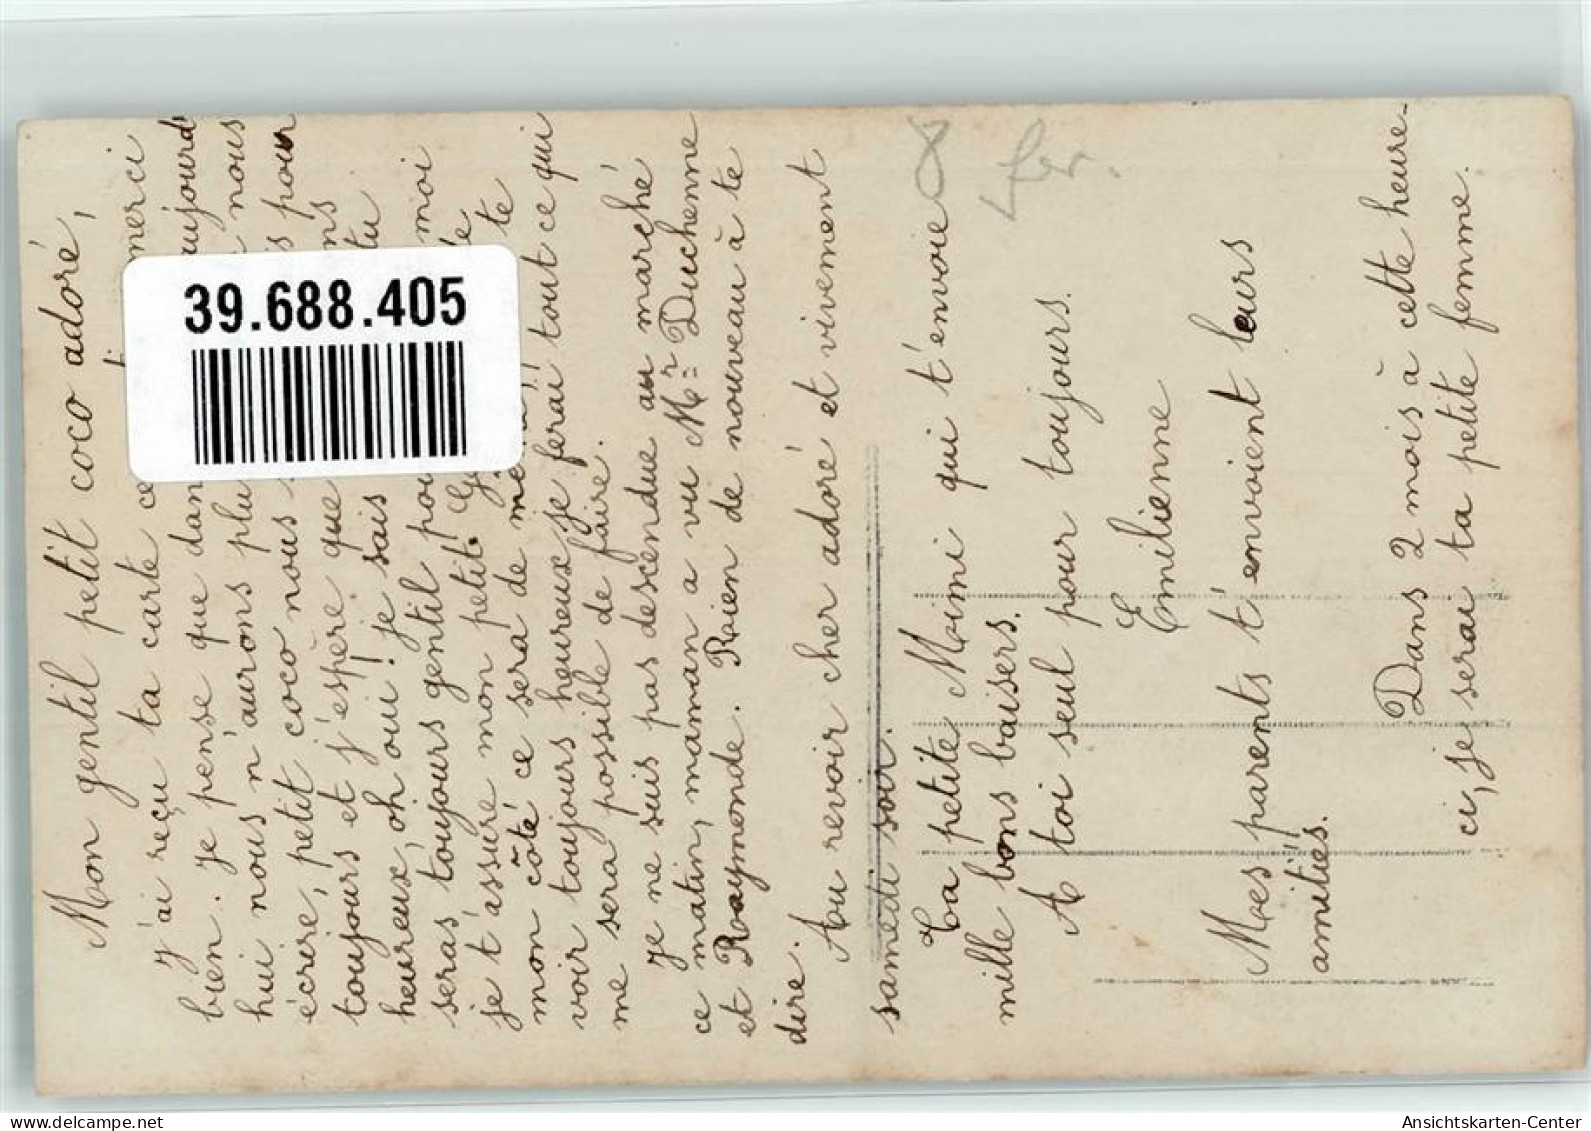 Mon gentil petit coco adoré,
j'ai reçu ta carte ce merci
bien. Je pense que dan aujourd
hui nous n'aurons plu nous
écrire, petit coco nous pour
toujours et j'espère que
heureux, oh oui! je sais tu
seras toujours gentil pou moi
je t'assure mon petit
mon côté ce sera de te
voir toujours heureux je ferai tout ce qui
me sera possible de faire.
Je ne suis pas descendue au marché
ce matin, maman a vu Mr Duchenne
et Raymonde. Rien de nouveau à te
dire.
Au revoir cher adoré et vivement
samedi soir.
La petite Mimi qui t'envoie
mille bons baisers.
A toi seul pour toujours.
Emilienne
Mes parents t'envoient leurs
amitiés.
Dans 2 mois à cette heure-
ci, je serai ta petite femme.
8
39.688.405
delcampe.net
Ansichtskarten-Center